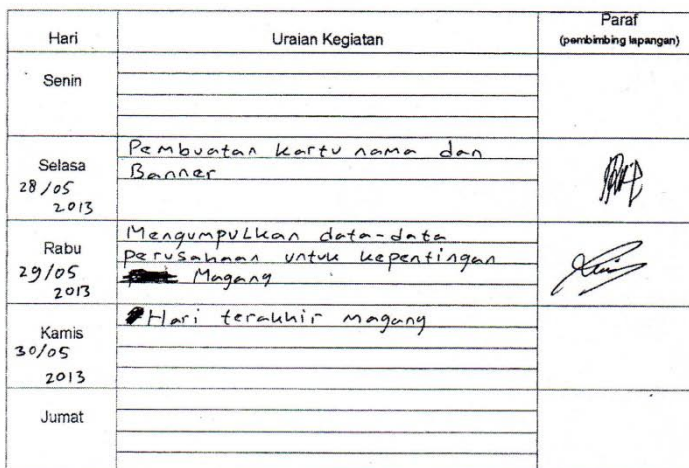 Hari Uraian Kegiatan Paraf
(pembimbing lapangan)
Senin
Selasa
28/05
2013
Pembuatan kartu nama dan
Banner
Rabu
29/05
2013
Mengumpulkan data-data
perusahaan untuk kepentingan
Magang
Kamis
30/05
2013
Hari terakhir magang
Jumat